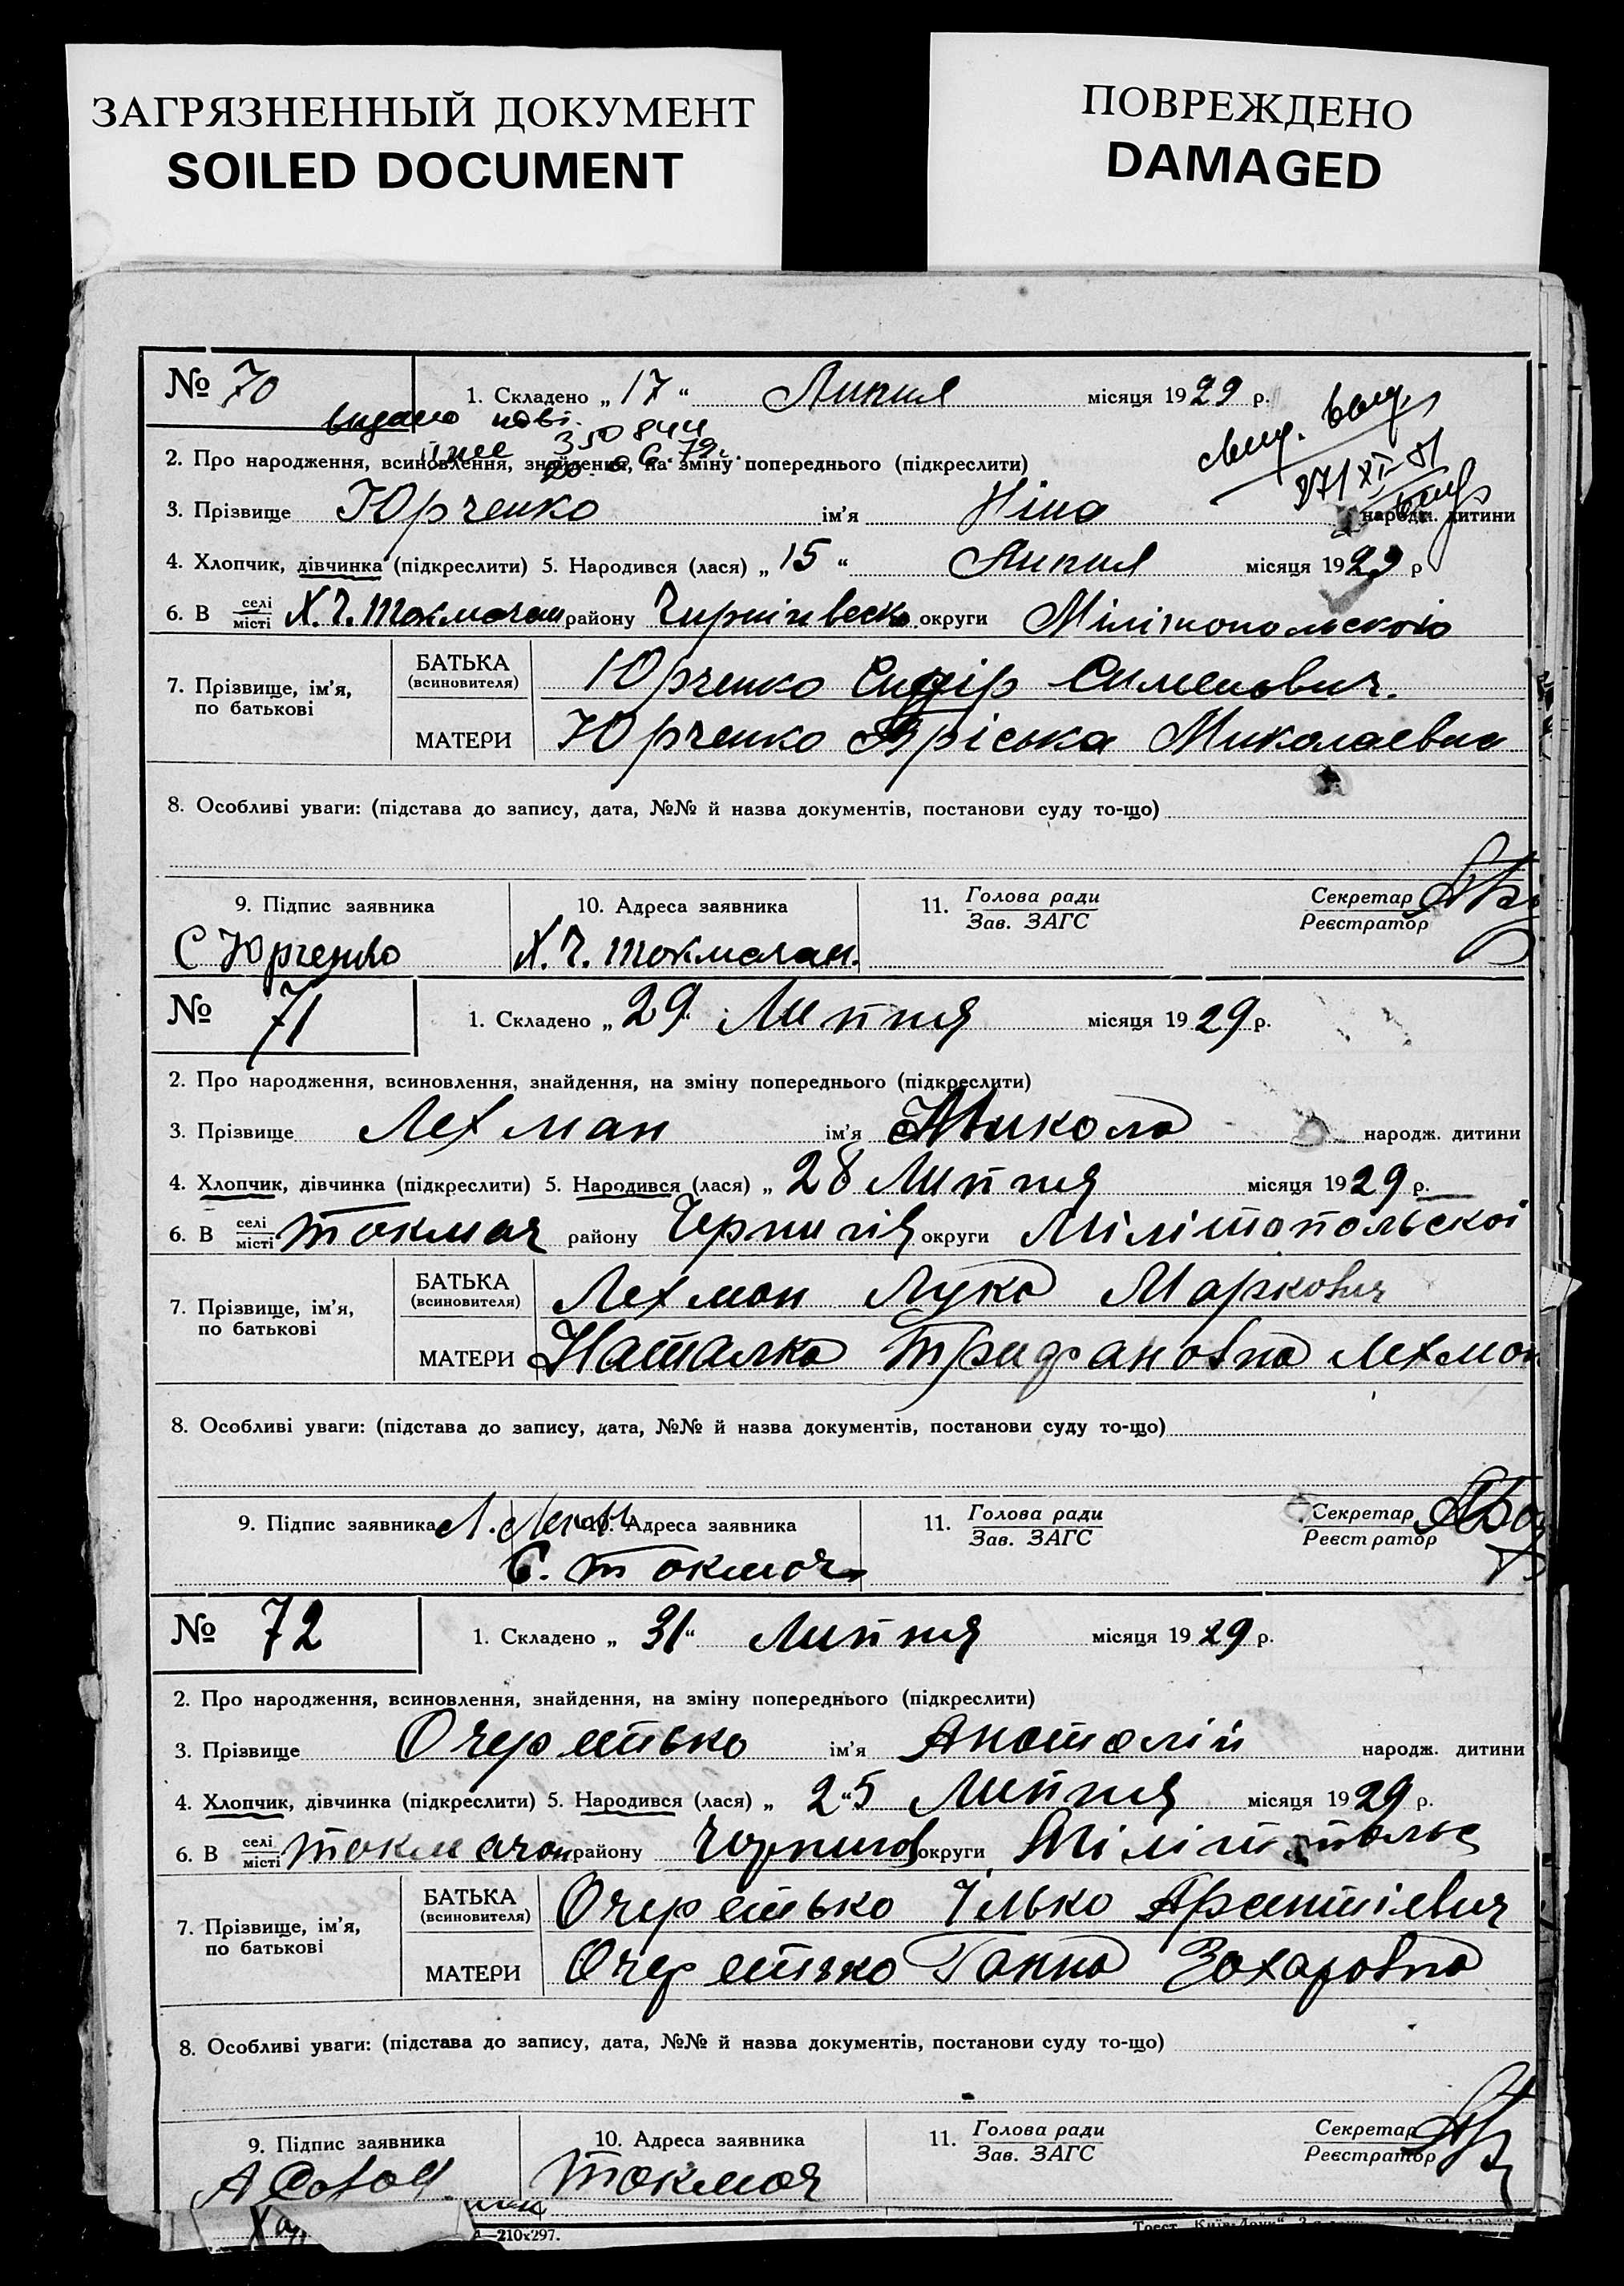 ЗАГРЯЗНЕННЫЙ ДОКУМЕНТ
SOILED DOCUMENT
ПОВРЕЖДЕНО
DAMAGED
№ 70 1. Складено „ 17 “ Липня місяця 1929 р.
видано нові
350844
2. Про народження, всиновлення, знайдення, на зміну попереднього (підкреслити)
3. Прізвище Юрченко ім’я Ніна народж. дитини
4. Хлопчик, дівчинка (підкреслити) 5. Народився (лася) „ 15 “ Липня місяця 1929 р
6. В селі місті Х. Ч. Токмачан району округи Мілітопольскою
7. Прізвище, ім’я, по батькові
БАТЬКА (всиновителя) Юрченко Сидір Сименович.
МАТЕРИ Юрченко Пріська Миколаевна
8. Особливі уваги: (підстава до запису, дата, №№ й назва документів, постанови суду то-що)
9. Підпис заявника 10. Адреса заявника 11. Голова ради Зав. ЗАГС Секретар Реєстратор
С Юрченко Х. Ч. Токмачан.
№ 71 1. Складено „ 29 Липня місяця 1929 р.
2. Про народження, всиновлення, знайдення, на зміну попереднього (підкреслити)
3. Прізвище Лехман ім’я Микола народж. дитини
4. Хлопчик, дівчинка (підкреслити) 5. Народився (лася) „ 28 Липня місяця 1929 р.
6. В селі місті Токмач району Чернигів округи Мілітопольскоі
7. Прізвище, ім’я, по батькові
БАТЬКА (всиновителя) Лехман Лука Маркович
МАТЕРИ Наталка Трифановна Лехман
8. Особливі уваги: (підстава до запису, дата, №№ й назва документів, постанови суду то-що)
9. Підпис заявника 10. Адреса заявника 11. Голова ради Зав. ЗАГС Секретар Реєстратор
С. Токмач
№ 72 1. Складено „ 31 “ Липня місяця 1929 р.
2. Про народження, всиновлення, знайдення, на зміну попереднього (підкреслити)
3. Прізвище Очеретько ім’я Анатолій народж. дитини
4. Хлопчик, дівчинка (підкреслити) 5. Народився (лася) „ 25 “ Липня місяця 1929 р.
6. В селі місті Токмачан району Чернигов округи Мілітпольс
7. Прізвище, ім’я, по батькові
БАТЬКА (всиновителя) Очеретько Ілько Арентіевич
МАТЕРИ Очеретько Ганна Захаровна
8. Особливі уваги: (підстава до запису, дата, №№ й назва документів, постанови суду то-що)
9. Підпис заявника 10. Адреса заявника 11. Голова ради Зав. ЗАГС Секретар Реєстратор
Токмач
210х297.